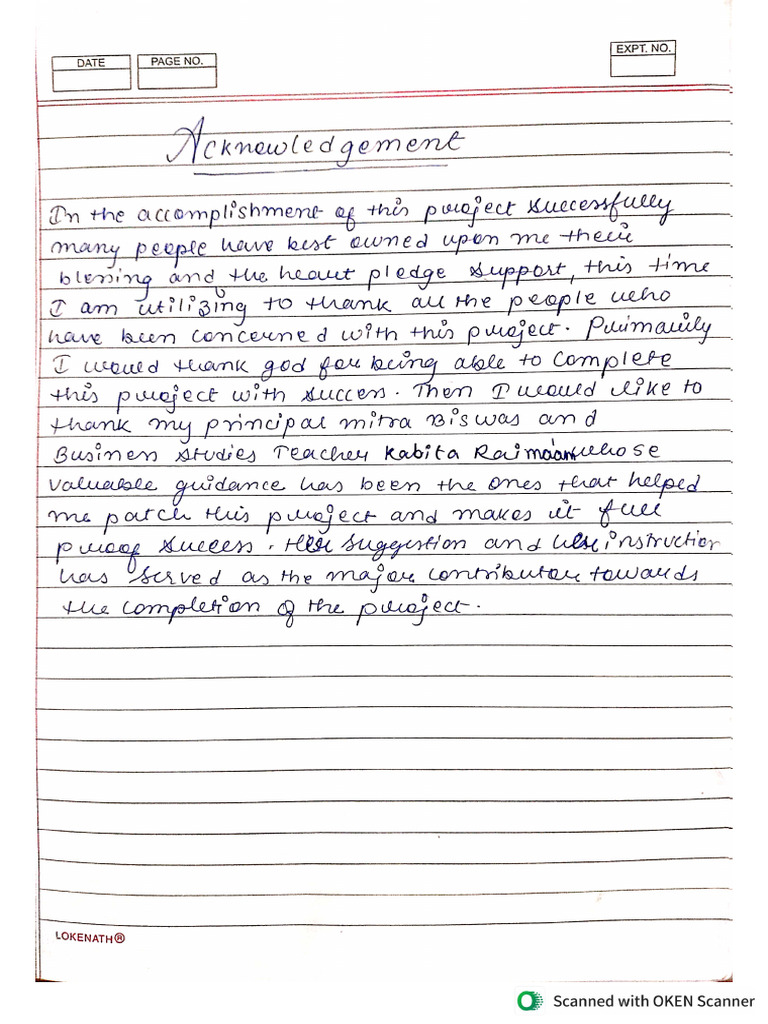 DATE
PAGE NO.
EXPT. NO.
Acknowledgement
In the accomplishment of this project successfully
many people have best owned upon me their
blessing and the heart pledge support, this time
I am utilizing to thank all the people who
have been concerned with this project. Primarily
I would thank god for being able to complete
this project with success. Then I would like to
thank my principal mitra Biswas and
Business Studies Teacher Kabita Raimaan whose
valuable guidance has been the ones that helped
me patch this project and makes it full
proof success. suggestion and instruction
has served as the major contributor towards
the completion of the project.
LOKENATH®
Scanned with OKEN Scanner